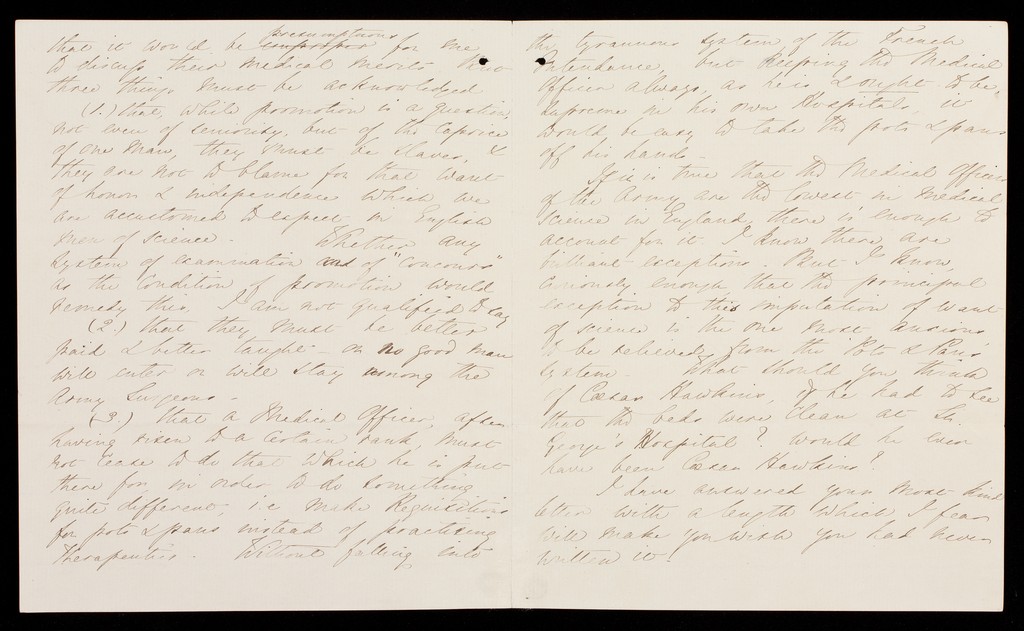 that it would be improper presumptuous for me
to discuss their medical merits. two
three things must be acknowledged
(1.) that, while promotion is a question,
not even of seniority, but of the caprice
of one man, they must be slaves, &
they are not to blame for that want
of honor & independence which we
are accustomed to expect in English
men of science. Whether any
system of examination and of "concours"
as the condition of promotion would
remedy this, I am not qualified to say
(2.) that they must be better
paid & better taught - or no good man
will enter or will stay among the
Army Surgeons -
(3.) that a Medical Officer, after
having risen to a certain rank, must
not cease to do that which he is put
there for, in order to do something
quite different, i.e. make Requisitions
for pots & pans instead of practising
Therapeutics. Without falling into
the tyrannous system of the French
Intendance, but keeping the Medical
Officer always, as he is & ought to be,
supreme in his own Hospital, it
would be easy to take the pots & pans
off his hands -
If it is true that the Medical Officers
of the Army are the lowest in medical
science in England, there is enough to
account for it. I know there are
brilliant exceptions. But I know,
curiously enough, that the principal
exception to this imputation of want
of science is the one most anxious
to be relieved from the 'Pots & Pans'
system. What should you think
of Caesar Hawkins, if he had to see
that the beds were clean at St.
George's Hospital? Would he ever
have been Caesar Hawkins?
I have answered your most kind
letter with a length which I fear
will make you wish you had never
written it.